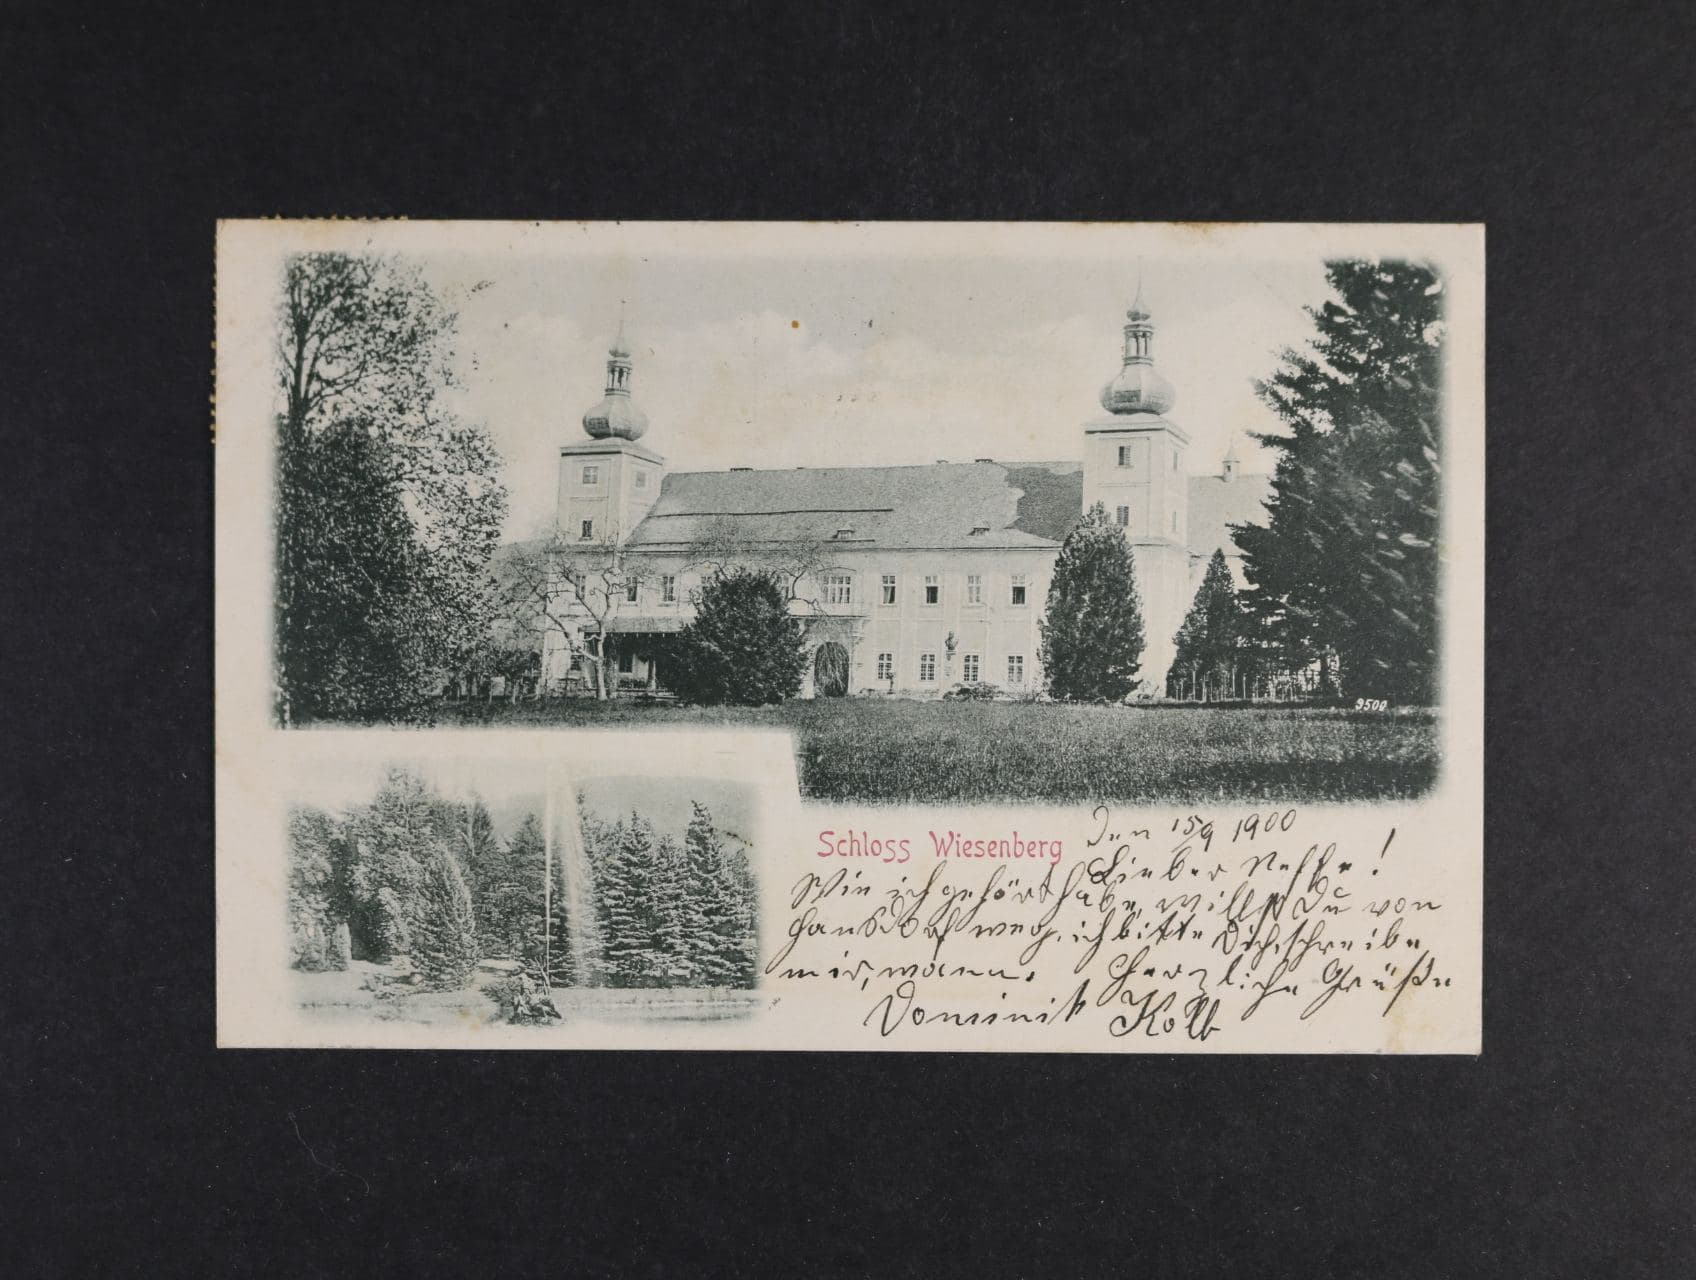 9500
Schloss Wiesenberg
Den 15/9 1900
Lieber Neffe!
Wie ich gehört habe, willst Du von
Hansdorf weg, ich bitte Dich, schreibe
mir, wann. Herzliche Grüße
Dominik Kolb